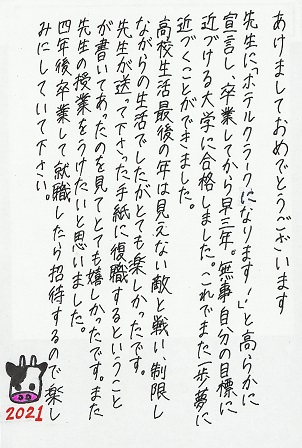 あけましておめでとうございます
先生に「ホテルクラークになります!」と高らかに
宣言し、卒業してから早三年。無事自分の目標に
近づける大学に合格しました。これでまた一歩夢に
近づくことができました。
高校生活最後の年は見えない敵と戦い、制限し
ながらの生活でしたがとても楽しかったです。
先生が送って下さった手紙に復職するということ
が書いてあったのを見てとても嬉しかったです。また
先生の授業をうけたいと思いました。
四年後卒業して就職したら招待するので楽し
みにしていて下さい。
2021